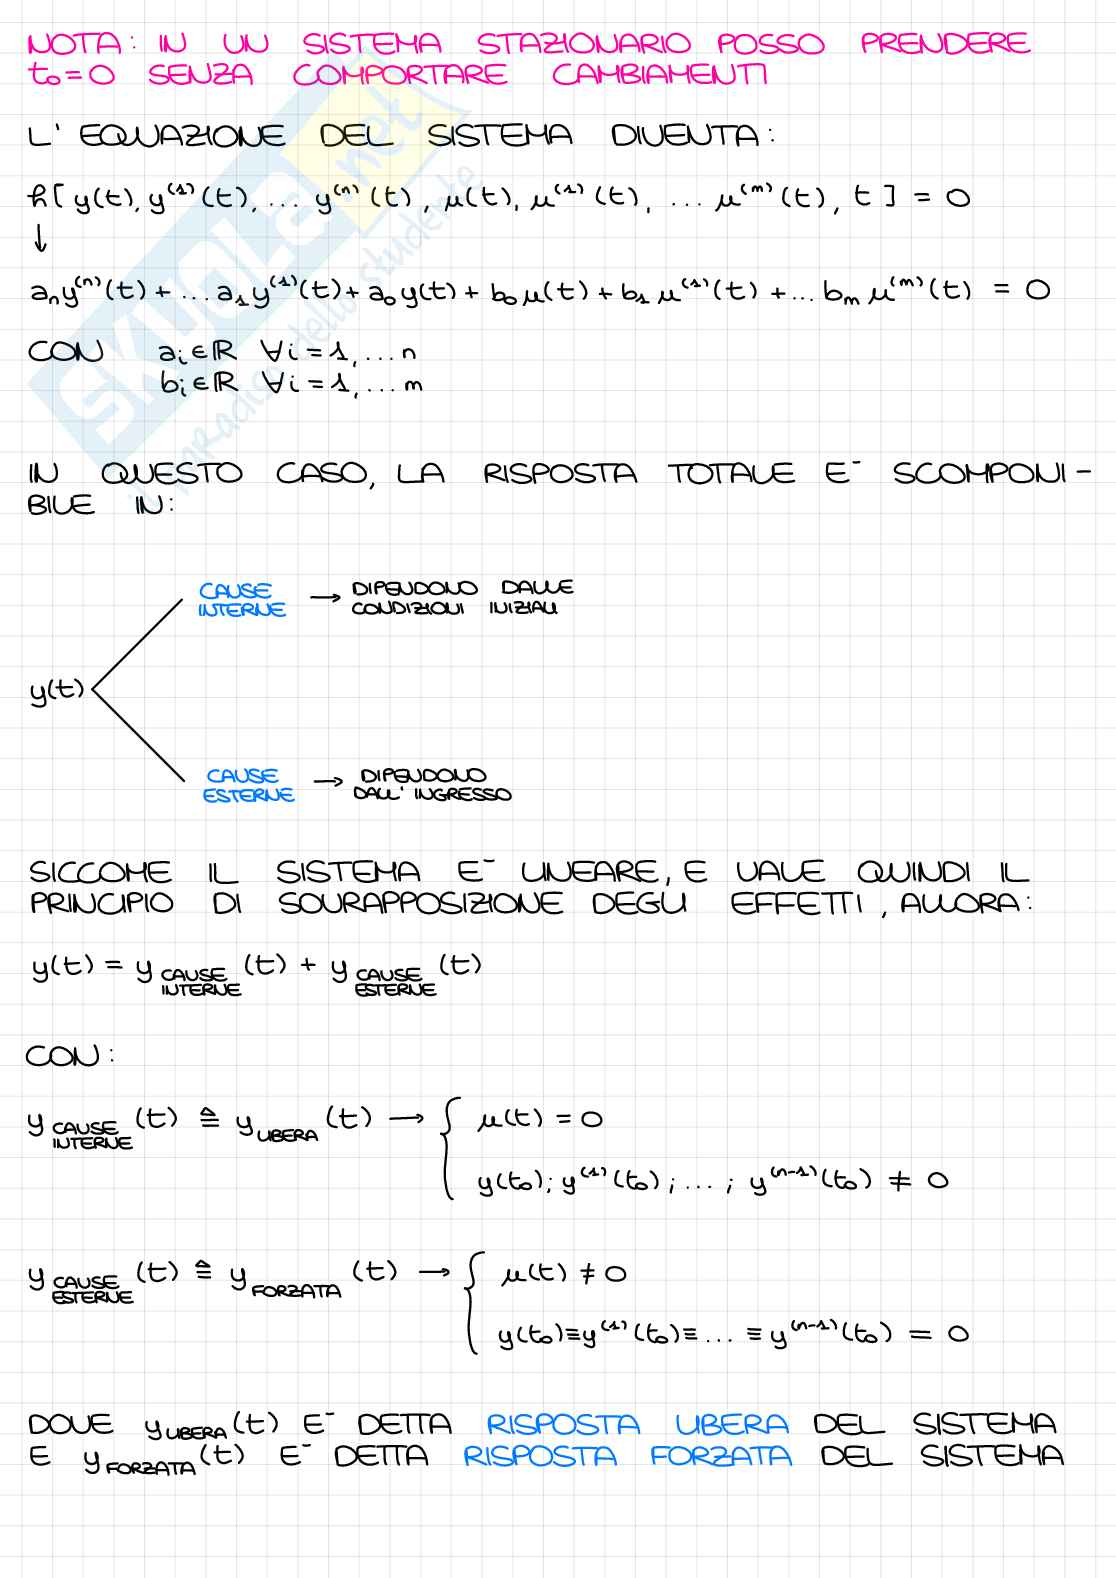 NOTA: IN UN SISTEMA STAZIONARIO POSSO PRENDERE
t₀=0 SENZA COMPORTARE CAMBIAMENTI
L'EQUAZIONE DEL SISTEMA DIVENTA:
h[y(t), y⁽¹⁾(t), ... y⁽ⁿ⁾(t), u(t), u⁽¹⁾(t), ... u⁽ᵐ⁾(t), t] = 0
↓
aₙy⁽ⁿ⁾(t) + ... a₁y⁽¹⁾(t) + a₀y(t) + b₀u(t) + b₁u⁽¹⁾(t) + ... bₘu⁽ᵐ⁾(t) = 0
CON aᵢ∈ℝ ∀i=1,...n
bᵢ∈ℝ ∀i=1,...m
IN QUESTO CASO, LA RISPOSTA TOTALE E¯ SCOMPONI-
BILE IN:
CAUSE INTERNE → DIPENDONO DALLE
CONDIZIONI INIZIALI
y(t)
CAUSE ESTERNE → DIPENDONO
DALL'INGRESSO
SICCOME IL SISTEMA E¯ LINEARE, E VALE QUINDI IL
PRINCIPIO DI SOVRAPPOSIZIONE DEGLI EFFETTI, ALLORA:
y(t) = y CAUSE INTERNE (t) + y CAUSE ESTERNE (t)
CON:
y CAUSE INTERNE (t) ≜ y LIBERA (t) → { u(t) = 0
y(t₀); y⁽¹⁾(t₀); ...; y⁽ⁿ⁻¹⁾(t₀) ≠ 0
y CAUSE ESTERNE (t) ≜ y FORZATA (t) → { u(t) ≠ 0
y(t₀)≡y⁽¹⁾(t₀)≡ ... ≡ y⁽ⁿ⁻¹⁾(t₀) = 0
DOVE y LIBERA (t) E¯ DETTA RISPOSTA LIBERA DEL SISTEMA
E y FORZATA (t) E¯ DETTA RISPOSTA FORZATA DEL SISTEMA
SKUOLA.net
il paradiso dello studente